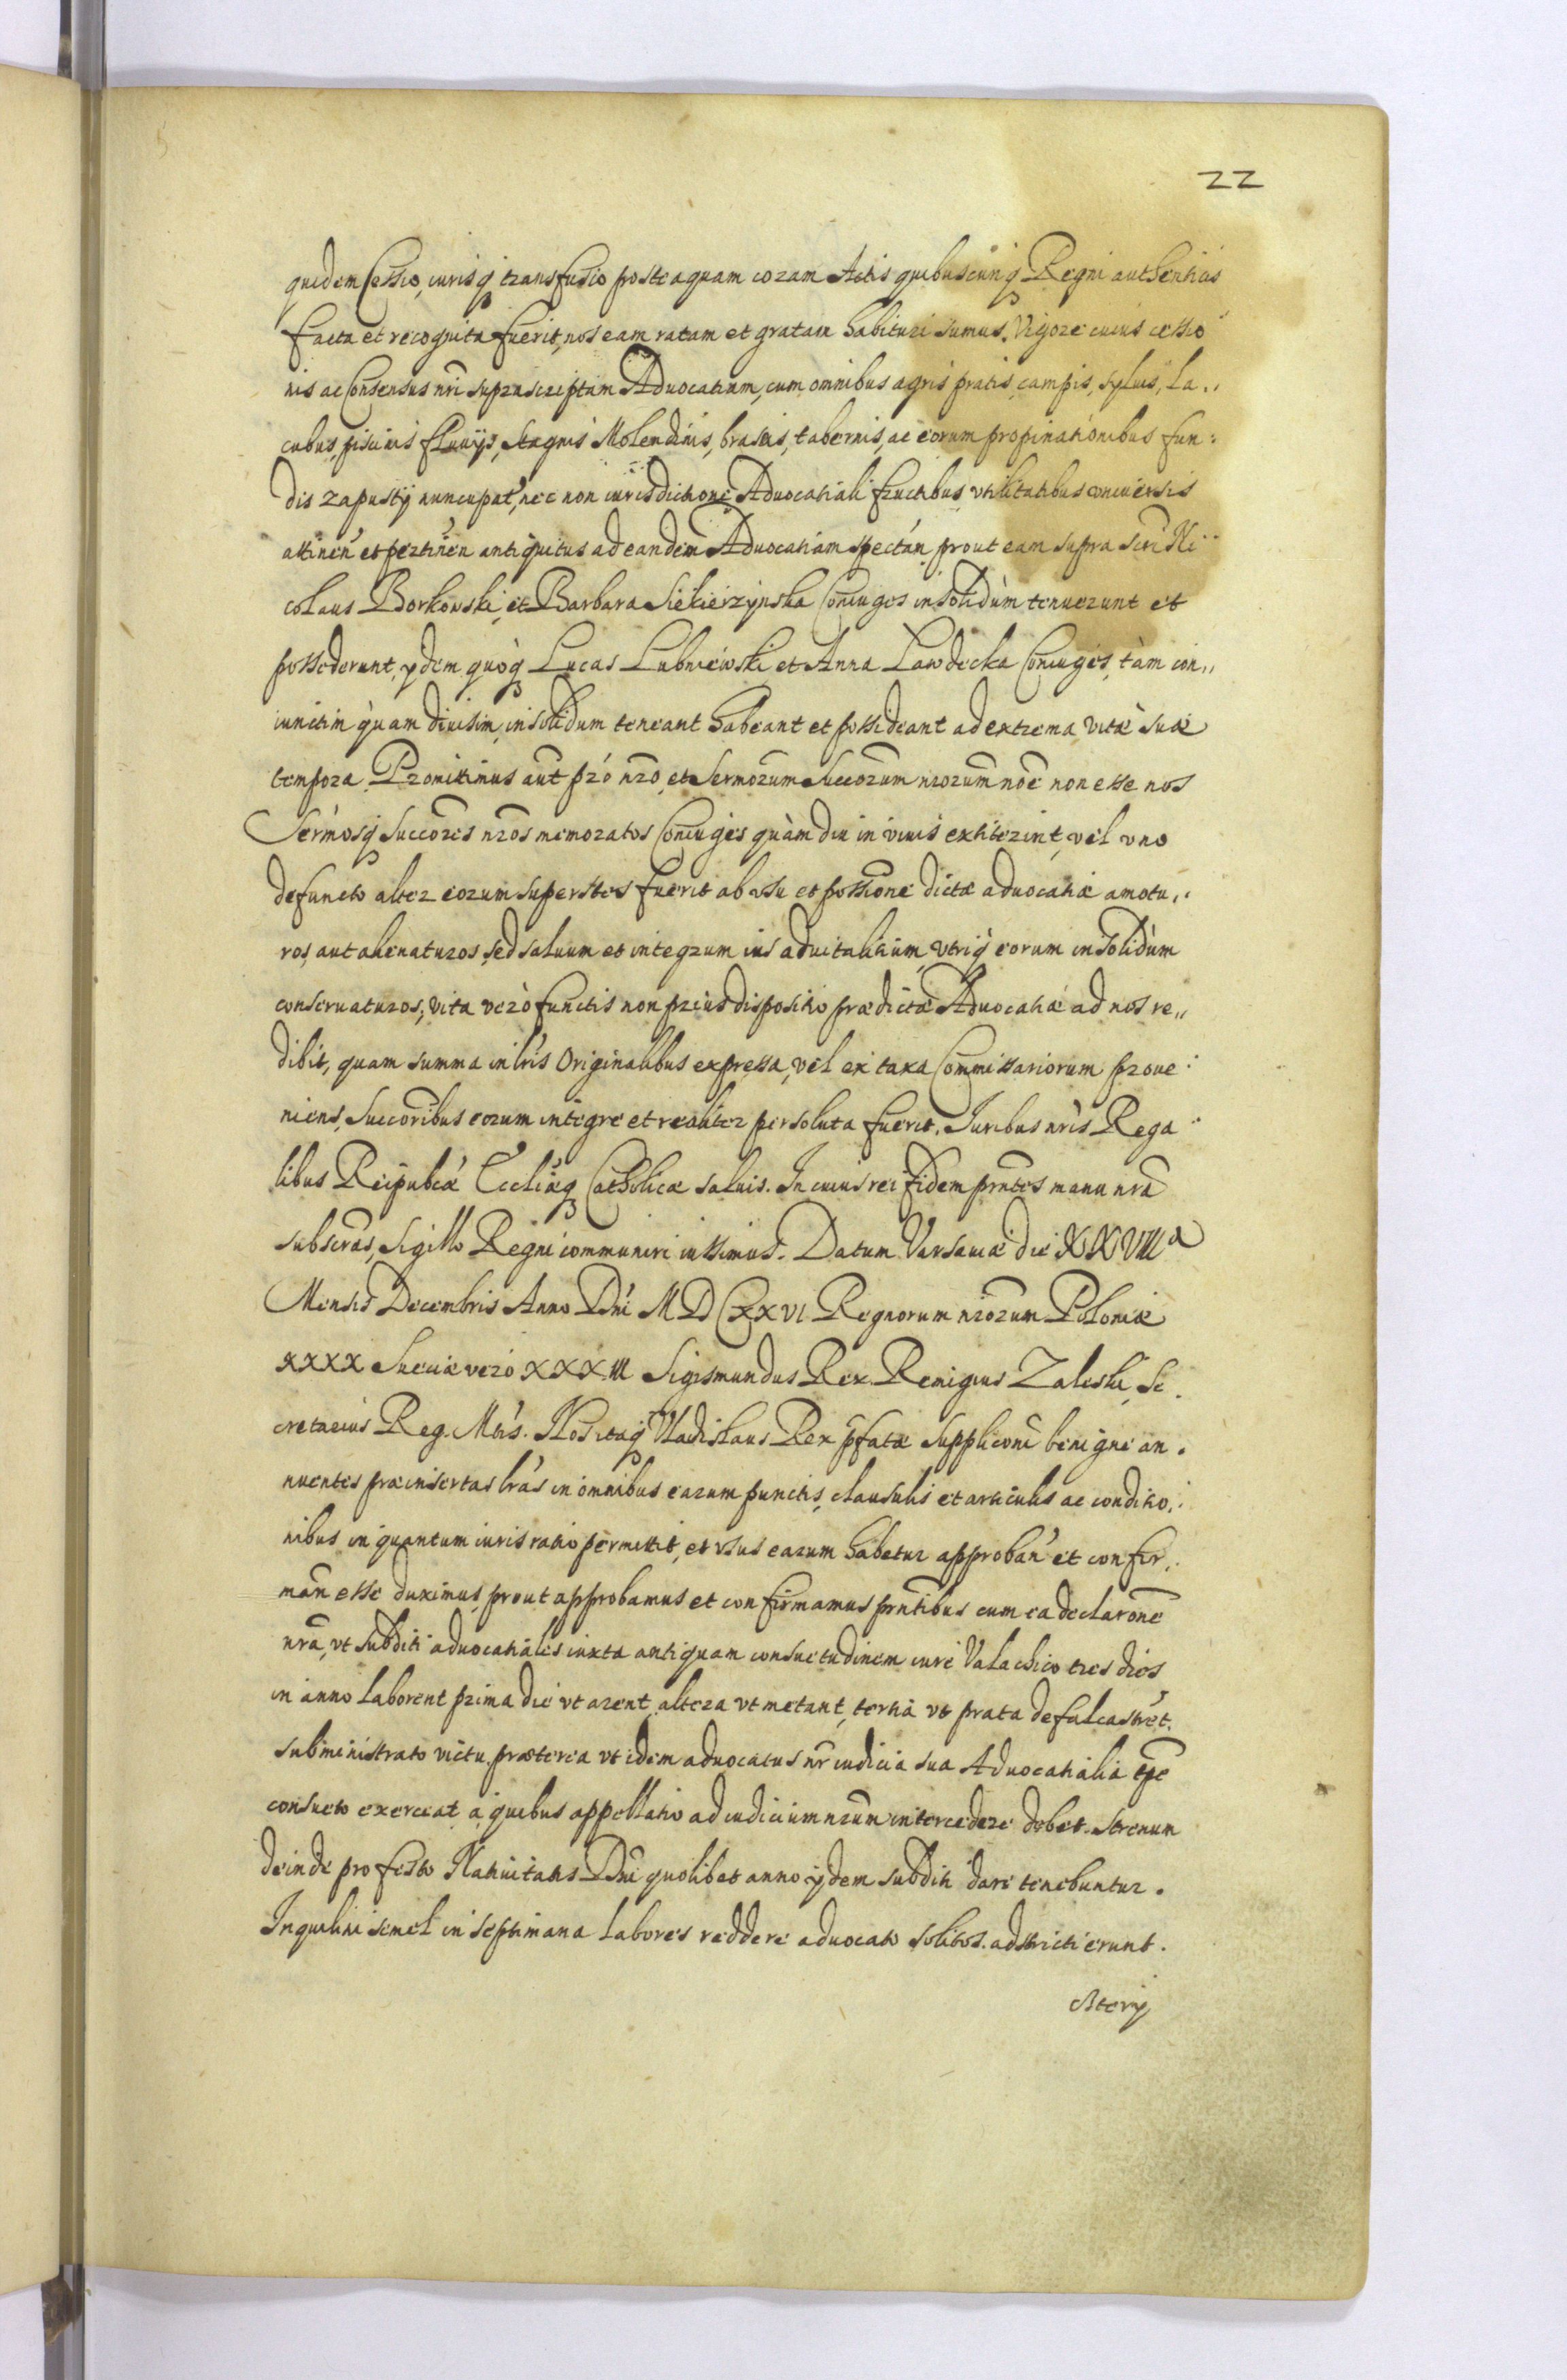 22
quidem Cessio, iurisq transfusio posteaquam coram Actis quibuscunq Regni authenticis
facta et recognita fuerit, nos eam ratam et gratam habituri sumus. Vigore cuius cessio
nis ac Consensus nri suprascriptam Aduocatiam, cum omnibus agris pratis, campis, syluis, La„
cubus, piscinis fluuijs, Stagnis Molendinis, braseis, tabernis, ac eorum propinationibus fun:
dis zapustÿ nuncupat, nec non iurisdictione Aduocatiali fructibus, vtilitatibus vniuersis
attinen et pertinen antiquitus ad eandem Aduocatiam spectan, prout eam supra scri Ni„
colaus Borkowski, et Barbara Siekierzynska Coniuges in solidum tenuerunt et
possederunt, ydem quoq Lucas Lubniewski et Anna Lawdecka Coniuges, tàm con„
iunctim quam diuisim, in solidum teneant habeant et possideant ad extrema vitæ suæ
tempora. Promittimus aut pro nro, et Sermorum Succorum nrorum noe non esse nos
Sermosq Succores nros memoratos Coniuges quàm diu in viuis extiterint, vel vno
defuncto alter eorum superstes fuerit ab vsu et possione dictæ aduocatiæ amotu„
ros, aut alienaturos, sed saluum et integrum ius aduitalitium, vtriq eorum in solidùm
conseruaturos, vita verò functis non prius dispositio prædictæ Aduocatiæ ad nos re„
dibit, quam summa in lris Originalibus expressa, vel ex taxa Commissariorum proue:
niens, Succoribus eorum integre et realiter persoluta fuerit. Iuribus nris Rega
libus Reipubcæ Ecclæq Catholicæ saluis. In cuius rei fidem prntes manu nra
subscras, Sigillo Regni communiri iussimus. Datum Varsauiæ die XXVIII a
Mensis Decembris Anno Dni M D CXXVI Regnorum nrorum Poloniæ
XXXX Sueciæ vero XXXIII Sigismundus Rex. Remigius Zaleski, Se„
cretarius Reg. Mtis. Nos itaq Vladislaus Rex pfatæ Suppliconi benigne an„
nuentes præinsertas lras in omnibus earum punctis, clausulis et articulis ac conditio„
nibus in quantum iuris ratio permittit, et vsus earum habetur approban et confir„
man esse duximus, prout approbamus et confirmamus prntibus cum ea declarone
nra, vt subditi aduocatiales iuxta antiquam consuetudinem iure Valachico tres dies
in anno Laborent prima die vt arent, altera vt metant, tertia vt prata defalcastret.
subministrato victu. præterea vt idem aduocatus nr iudicia sua Aduocatialia tpe
consueto exerceat, a quibus appellatio ad iudicium nrum intercedere debet. Strenum
deinde pro festo Natiuitatis Dni quolibet anno ydem subditi dare tenebuntur.
Inquilini semel in septimana Labores reddere aduocato solitos. adstricti erunt.